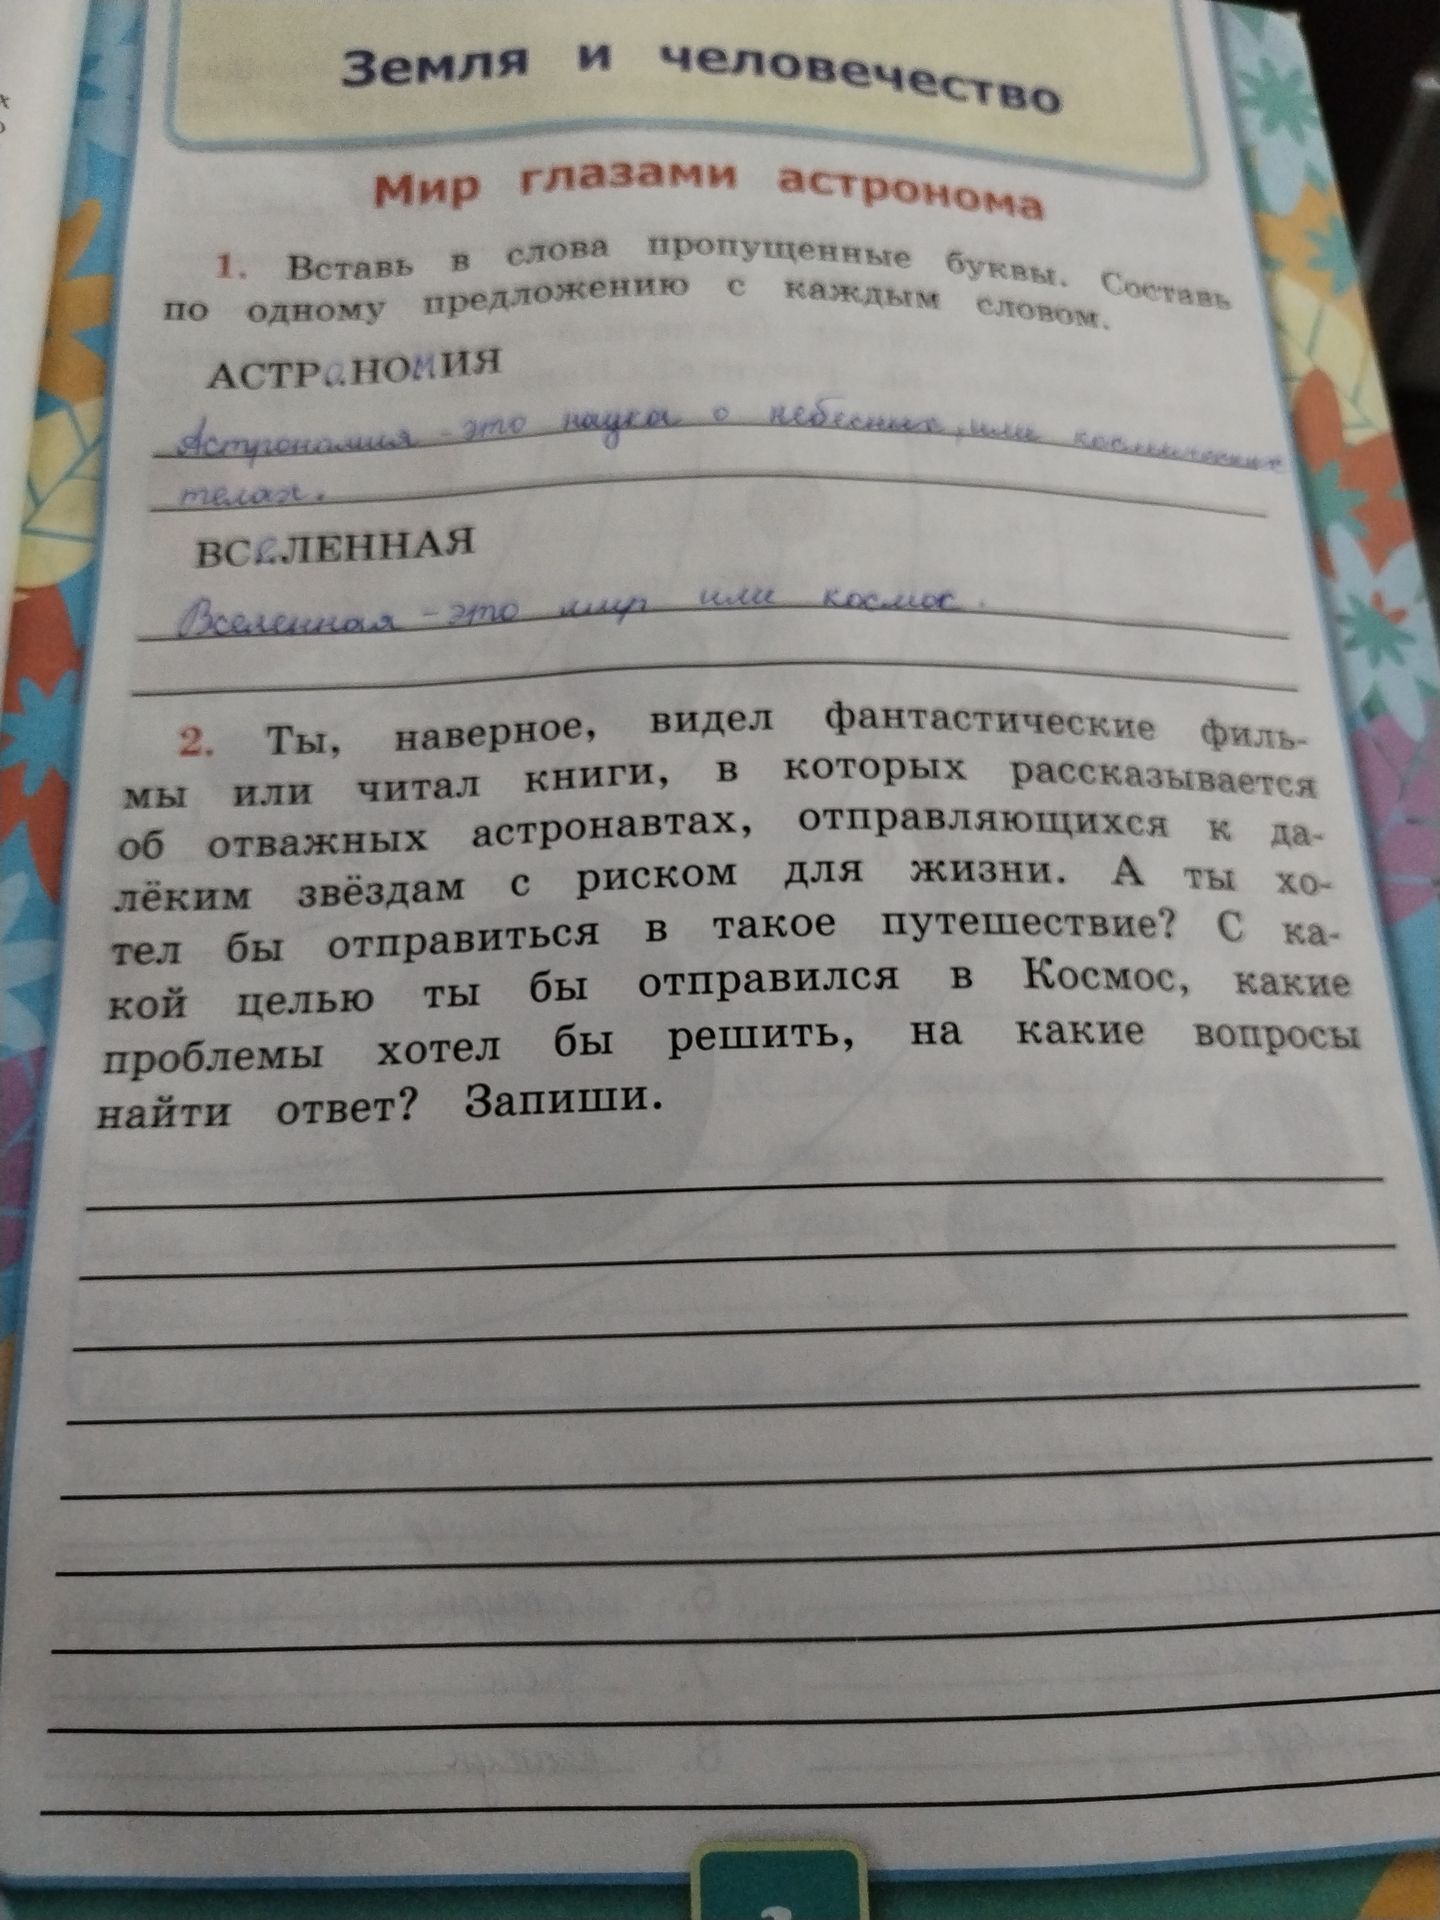 Земля и человечество
Мир глазами астронома
1. Вставь в слова пропущенные буквы. Составь
по одному предложению с каждым словом.
АСТРОНОМИЯ
Астрономия - это наука о небесных, или космических
телах.
ВСЕЛЕННАЯ
Вселенная - это мир или космос.
2. Ты, наверное, видел фантастические филь-
мы или читал книги, в которых рассказывается
об отважных астронавтах, отправляющихся к да-
лёким звёздам с риском для жизни. А ты хо-
тел бы отправиться в такое путешествие? С ка-
кой целью ты бы отправился в Космос, какие
проблемы хотел бы решить, на какие вопросы
найти ответ? Запиши.